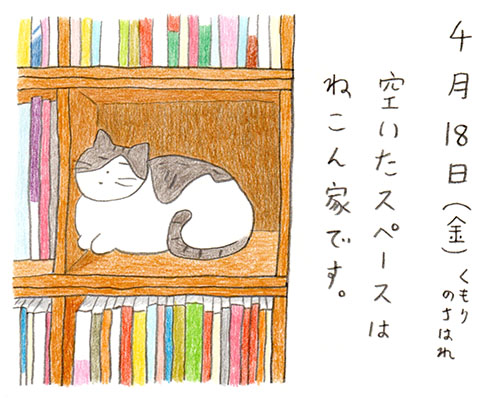 4月18日(金)くもりのちはれ
空いたスペースは
ねこん家です。